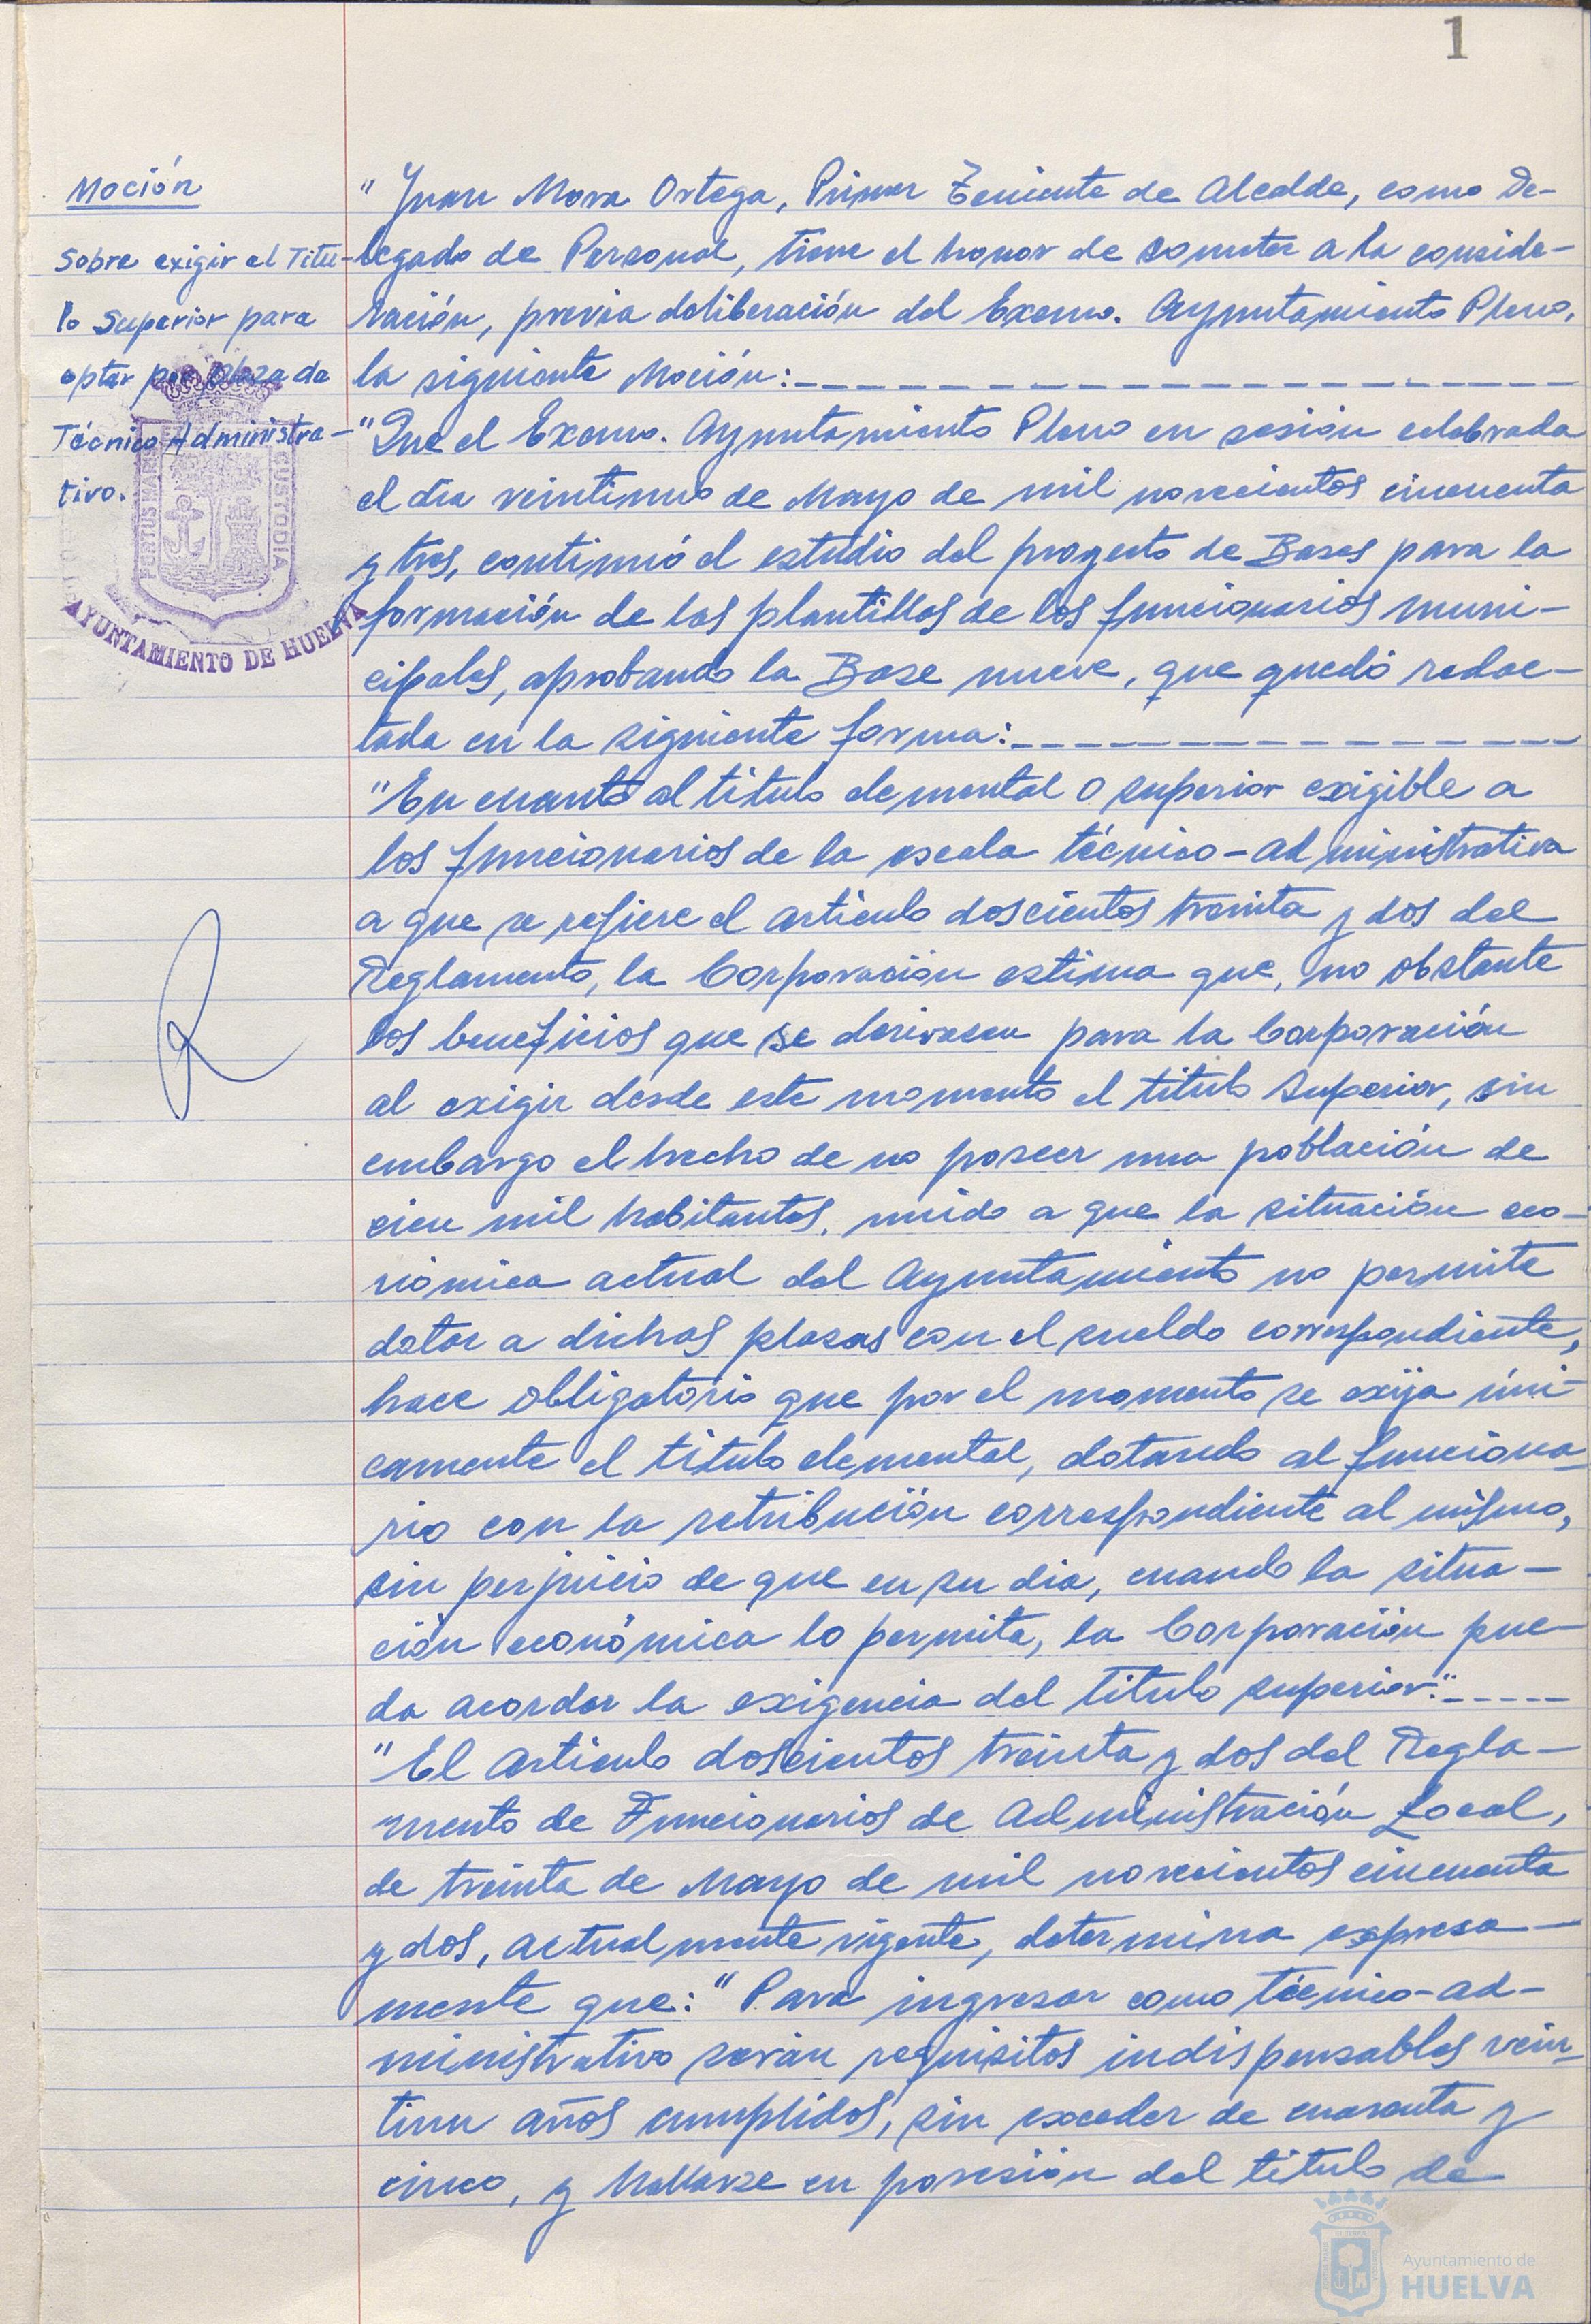 1
Moción
Sobre exigir el Titu-
lo Superior para
optar por Plaza de
Técnico Administra-
tivo.
PORTUS MARIS
CUSTODIA
AYUNTAMIENTO DE HUELVA
" Juan Mora Ortega, Primer Teniente de Alcalde, como De-
legado de Personal, tiene el honor de someter a la conside-
ración, previa deliberación del Excmo. Ayuntamiento Pleno,
la siguiente Moción:
"Que el Excmo. Ayuntamiento Pleno en sesión celebrada
el dia veintinueve de Mayo de mil novecientos cincuenta
y tres, continuó el estudio del proyecto de Bases para la
formación de las plantillas de los funcionarios muni-
cipales, aprobando la Base nueve, que quedó redac-
tada en la siguiente forma:
"En cuanto al titulo elemental o superior exigible a
los funcionarios de la escala técnico-administrativa
a que se refiere el articulo doscientos treinta y dos del
Reglamento, la Corporación estima que, no obstante
los beneficios que se derivasen para la Corporación
al exigir desde este momento el titulo Superior, sin
embargo el hecho de no poseer una población de
cien mil habitantes, unido a que la situación eco-
nómica actual del Ayuntamiento no permite
dotar a dichas plazas con el sueldo correspondiente,
hace obligatorio que por el momento se exija úni-
camente el titulo elemental, dotando al funciona-
rio con la retribución correspondiente al mismo,
sin perjuicio de que en su dia, cuando la situa-
ción económica lo permita, la Corporación pue-
da acordar la exigencia del titulo superior."
"El Articulo doscientos treinta y dos del Regla-
mento de Funcionarios de Administración Local,
de treinta de Mayo de mil novecientos cincuenta
y dos, actualmente vigente, determina expresa-
mente que: "Para ingresar como técnico-ad-
ministrativo serán requisitos indispensables vein-
tiun años cumplidos, sin exceder de cuarenta y
cinco, y hallarse en posesión del titulo de
Ayuntamiento de
HUELVA